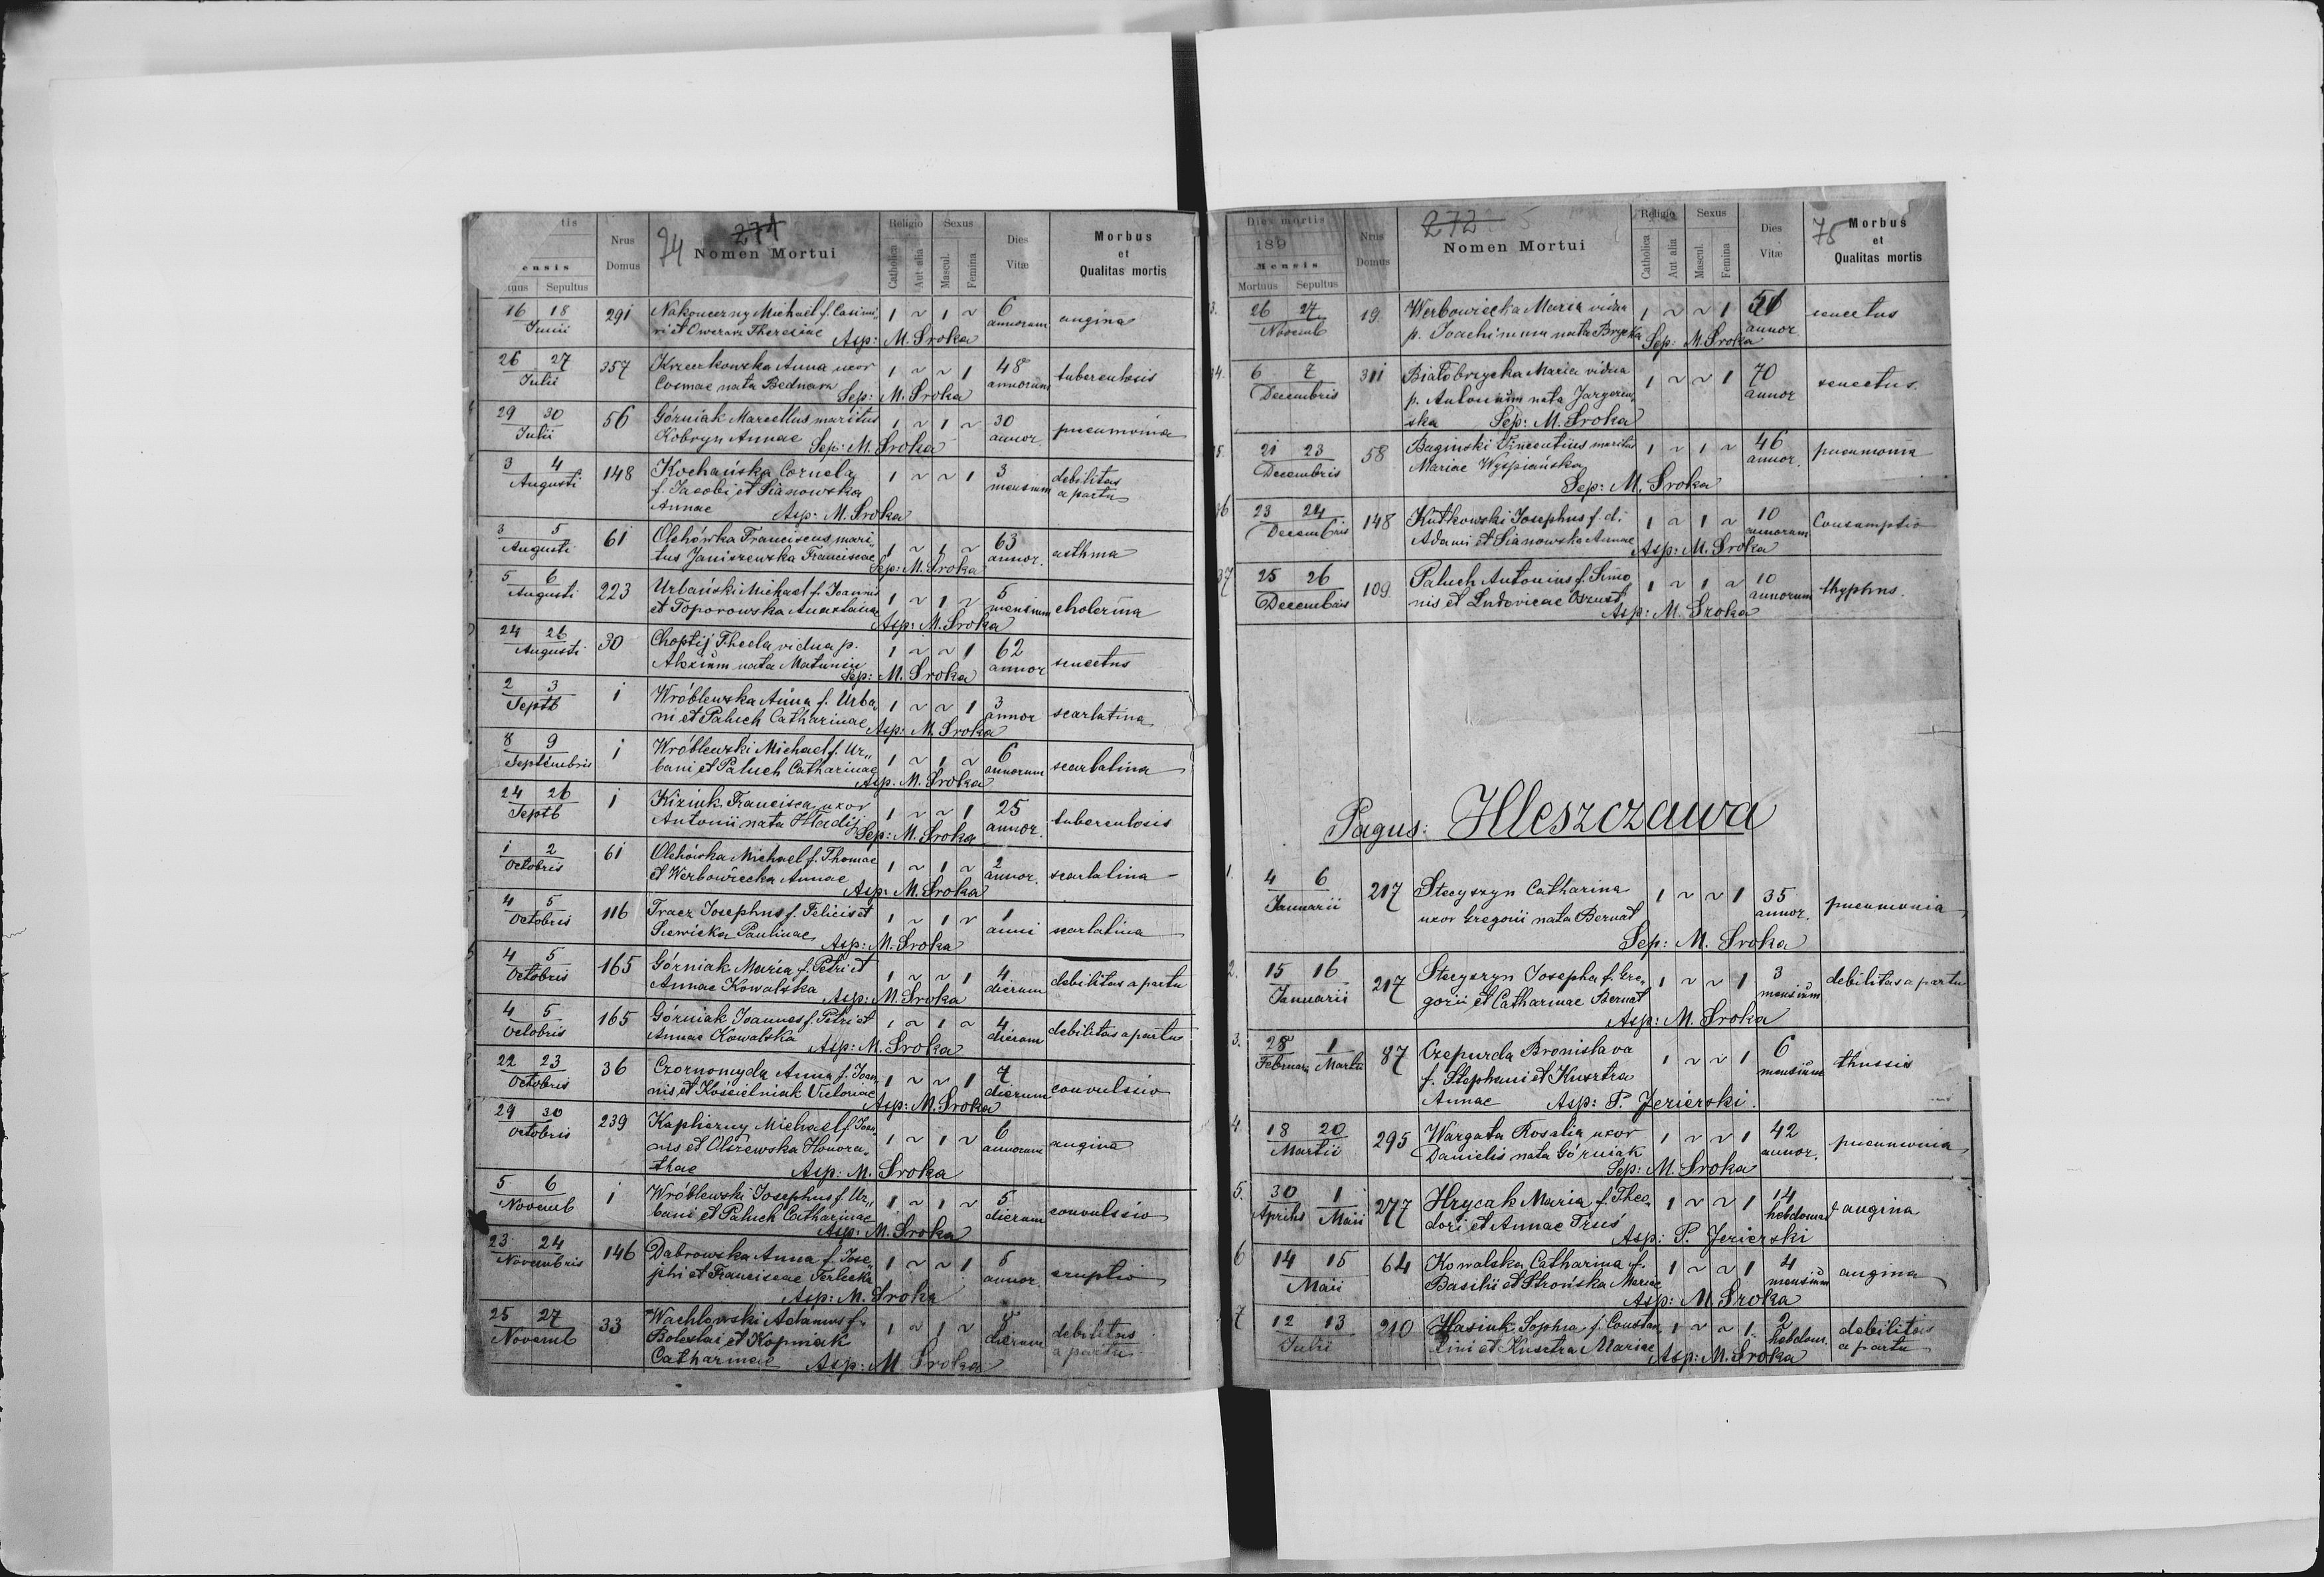 tis
ensis
tuus Sepultus
Nrus
Domus
74 271
Nomen Mortui
Religio
Catholica
Aut alia
Sexus
Mascul.
Femina
Dies
Vitæ
Morbus
et
Qualitas mortis
16 18 291 Nakoneczny Michael f. Casimi„ 1 ~ 1 ~ 6 angina
Junii ri et Oweran Theresiae Asp: M. Sroka annorum
26 27 357 Krzeczkowska Anna uxor 1 ~ ~ 1 48 tuberculosis
Julii Cosmae nata Bednarz Sep: M. Sroka annorum
29 30 56 Górniak Marcellus maritus 1 ~ 1 ~ 30 pneumonia
Julii Kobryn Annae Sep: M. Sroka annor.
3 4 148 Kochańska Cornela 1 ~ ~ 1 3 debilitas
Augusti f. Jacobi et Sianowska mensium a partu
Annae Asp: M. Sroka
3 5 61 Olchówka Franciscus mari„ 1 ~ 1 ~ 63 asthma
Augusti tus Janiszewska Franciscae Sep: M. Sroka annor.
5 6 223 Urbański Michael f. Joannis 1 ~ 1 ~ 5 cholerina
Augusti et Toporowska Anastasiae Asp: M. Sroka mensium
24 26 30 Choptij Thecla vidua p. 1 ~ ~ 1 62 senectus
Augusti Alexium nata Matuniu Sep: M. Sroka annor
2 3 1 Wróblewska Anna f. Urba 1 ~ ~ 1 3 scarlatina
Septb ni et Paluch Catharinae Asp: M. Sroka annor
8 9 1 Wróblewski Michael f. Ur„ 1 ~ 1 ~ 6 scarlatina
Septembris bani et Paluch Catharinae Asp. M. Sroka annorum
24 26 1 Kiziuk Francisca uxor 1 ~ ~ 1 25 tuberculosis
Septb Antonii nata Hladij Sep: M. Sroka annor.
1 2 61 Olchówka Michael f. Thomae 1 ~ 1 ~ 2 scarlatina
Octobris et Werbowiecka Annae Asp: M. Sroka annor.
4 5 116 Tracz Josephus f. Felicis et 1 ~ 1 ~ 1 scarlatina
Octobris Siewicka Paulinae Asp: M. Sroka anni
4 5 165 Górniak Maria f. Petri et 1 ~ ~ 1 4 debilitas a partu
Octobris Annae Kowalska Asp: M. Sroka dierum
4 5 165 Górniak Joannes f. Petri et 1 ~ 1 ~ 4 debilitas a partu
Octobris Annae Kowalska Asp: M. Sroka dierum
22 23 36 Czornomyda Anna f. Joan„ 1 ~ ~ 1 7 convulsio
Octobris nis et Kościelniak Victoriae Asp: M. Sroka dierum
29 30 239 Kapliczny Michael f. Joan„ 1 ~ 1 ~ 6 angina
Octobris nis et Olszewska Honora„ annorum
thae Asp: M. Sroka
5 6 1 Wróblewski Josephus f. Ur„ 1 ~ 1 ~ 5 convulsio
Novemb bani et Paluch Catharinae Asp: M. Sroka dierum
23 24 146 Dabrowska Anna f. Jose„ 1 ~ ~ 1 5 eruptio
Novembris phi et Franciscae Terlecka annor.
Asp: M. Sroka
25 27 33 Wachlowski Adamus f. 1 ~ 1 ~ dierum debilitas
Novemb Boleslai et Kopniak a partu
Catharinae Asp: M Sroka
Dies mortis
189
Mensis
Mortuus Sepultus
Nrus
Domus
272
Nomen Mortui
Religio
Catholica
Aut alia
Sexus
Mascul.
Femina
Dies
Vitæ
75 Morbus
et
Qualitas mortis
3. 26 27 19 Werbowiecka Maria vidua 1 ~ ~ 1 senectus
Novemb p. Joachimum nata Brycka Sep: M. Sroka annor.
34. 6 7 311 Białobrzycka Maria vidua 1 ~ ~ 1 70 senectus.
Decembris p. Antonium nata Jargorow„ annor
ska Sep: M. Sroka
35. 21 23 58 Baginski Vincentius maritus 1 ~ 1 ~ 46 pneumonia
Decembris Mariae Wyspiańska annor.
Sep: M. Sroka
36 23 24 148 Kutkowski Josephus f. d. 1 ~ 1 ~ 10 Consumptio
Decembris Adami et Sianowska Annae Asp: M. Sroka annorum
37 25 26 109 Paluch Antonius f. Simo 1 ~ 1 ~ 10 thyphus.
Decembris nis et Ludovicae Oszust Asp: M. Sroka annorum
Pagus: Hleszczawa
1. 4 6 217 Stecyszyn Catharina 1 ~ ~ 1 35 pneumonia
Januarii uxor Gregorii nata Bernat annor.
Sep: M. Sroka
2. 15 16 217 Stecyszyn Josepha f. Gre„ 1 ~ ~ 1 3 debilitas a partu
Januarii gorii et Catharinae Bernat mensium
Asp: M. Sroka
3. 28 1 87 Czepurda Bronislava 1 ~ ~ 1 6 thussis
Februar. Martii f. Stephani et Kusztra mensium
Annae Asp: P. Jezierski.
4 18 20 295 Wargata Rosalia uxor 1 ~ ~ 1 42 pneumonia
Martii Danielis nata Górniak Sep: M. Sroka annor.
5. 30 1 277 Hrycak Maria f. Theo„ 1 ~ ~ 1 14 angina
Aprilis Maii dori et Annae Truś hebdomad
Asp: P. Jezierski
6 14 15 64 Kowalska Catharina f. 1 ~ ~ 1 4 angina
Maii Basilii et Strońska Mariae Asp: M. Sroka mensium
7 12 13 210 Hasiuk Sophia f. Constan„ 1 ~ ~ 1 2 debilitas
Julii tini et Kusztra Mariae Asp: M. Sroka hebdom. a partu